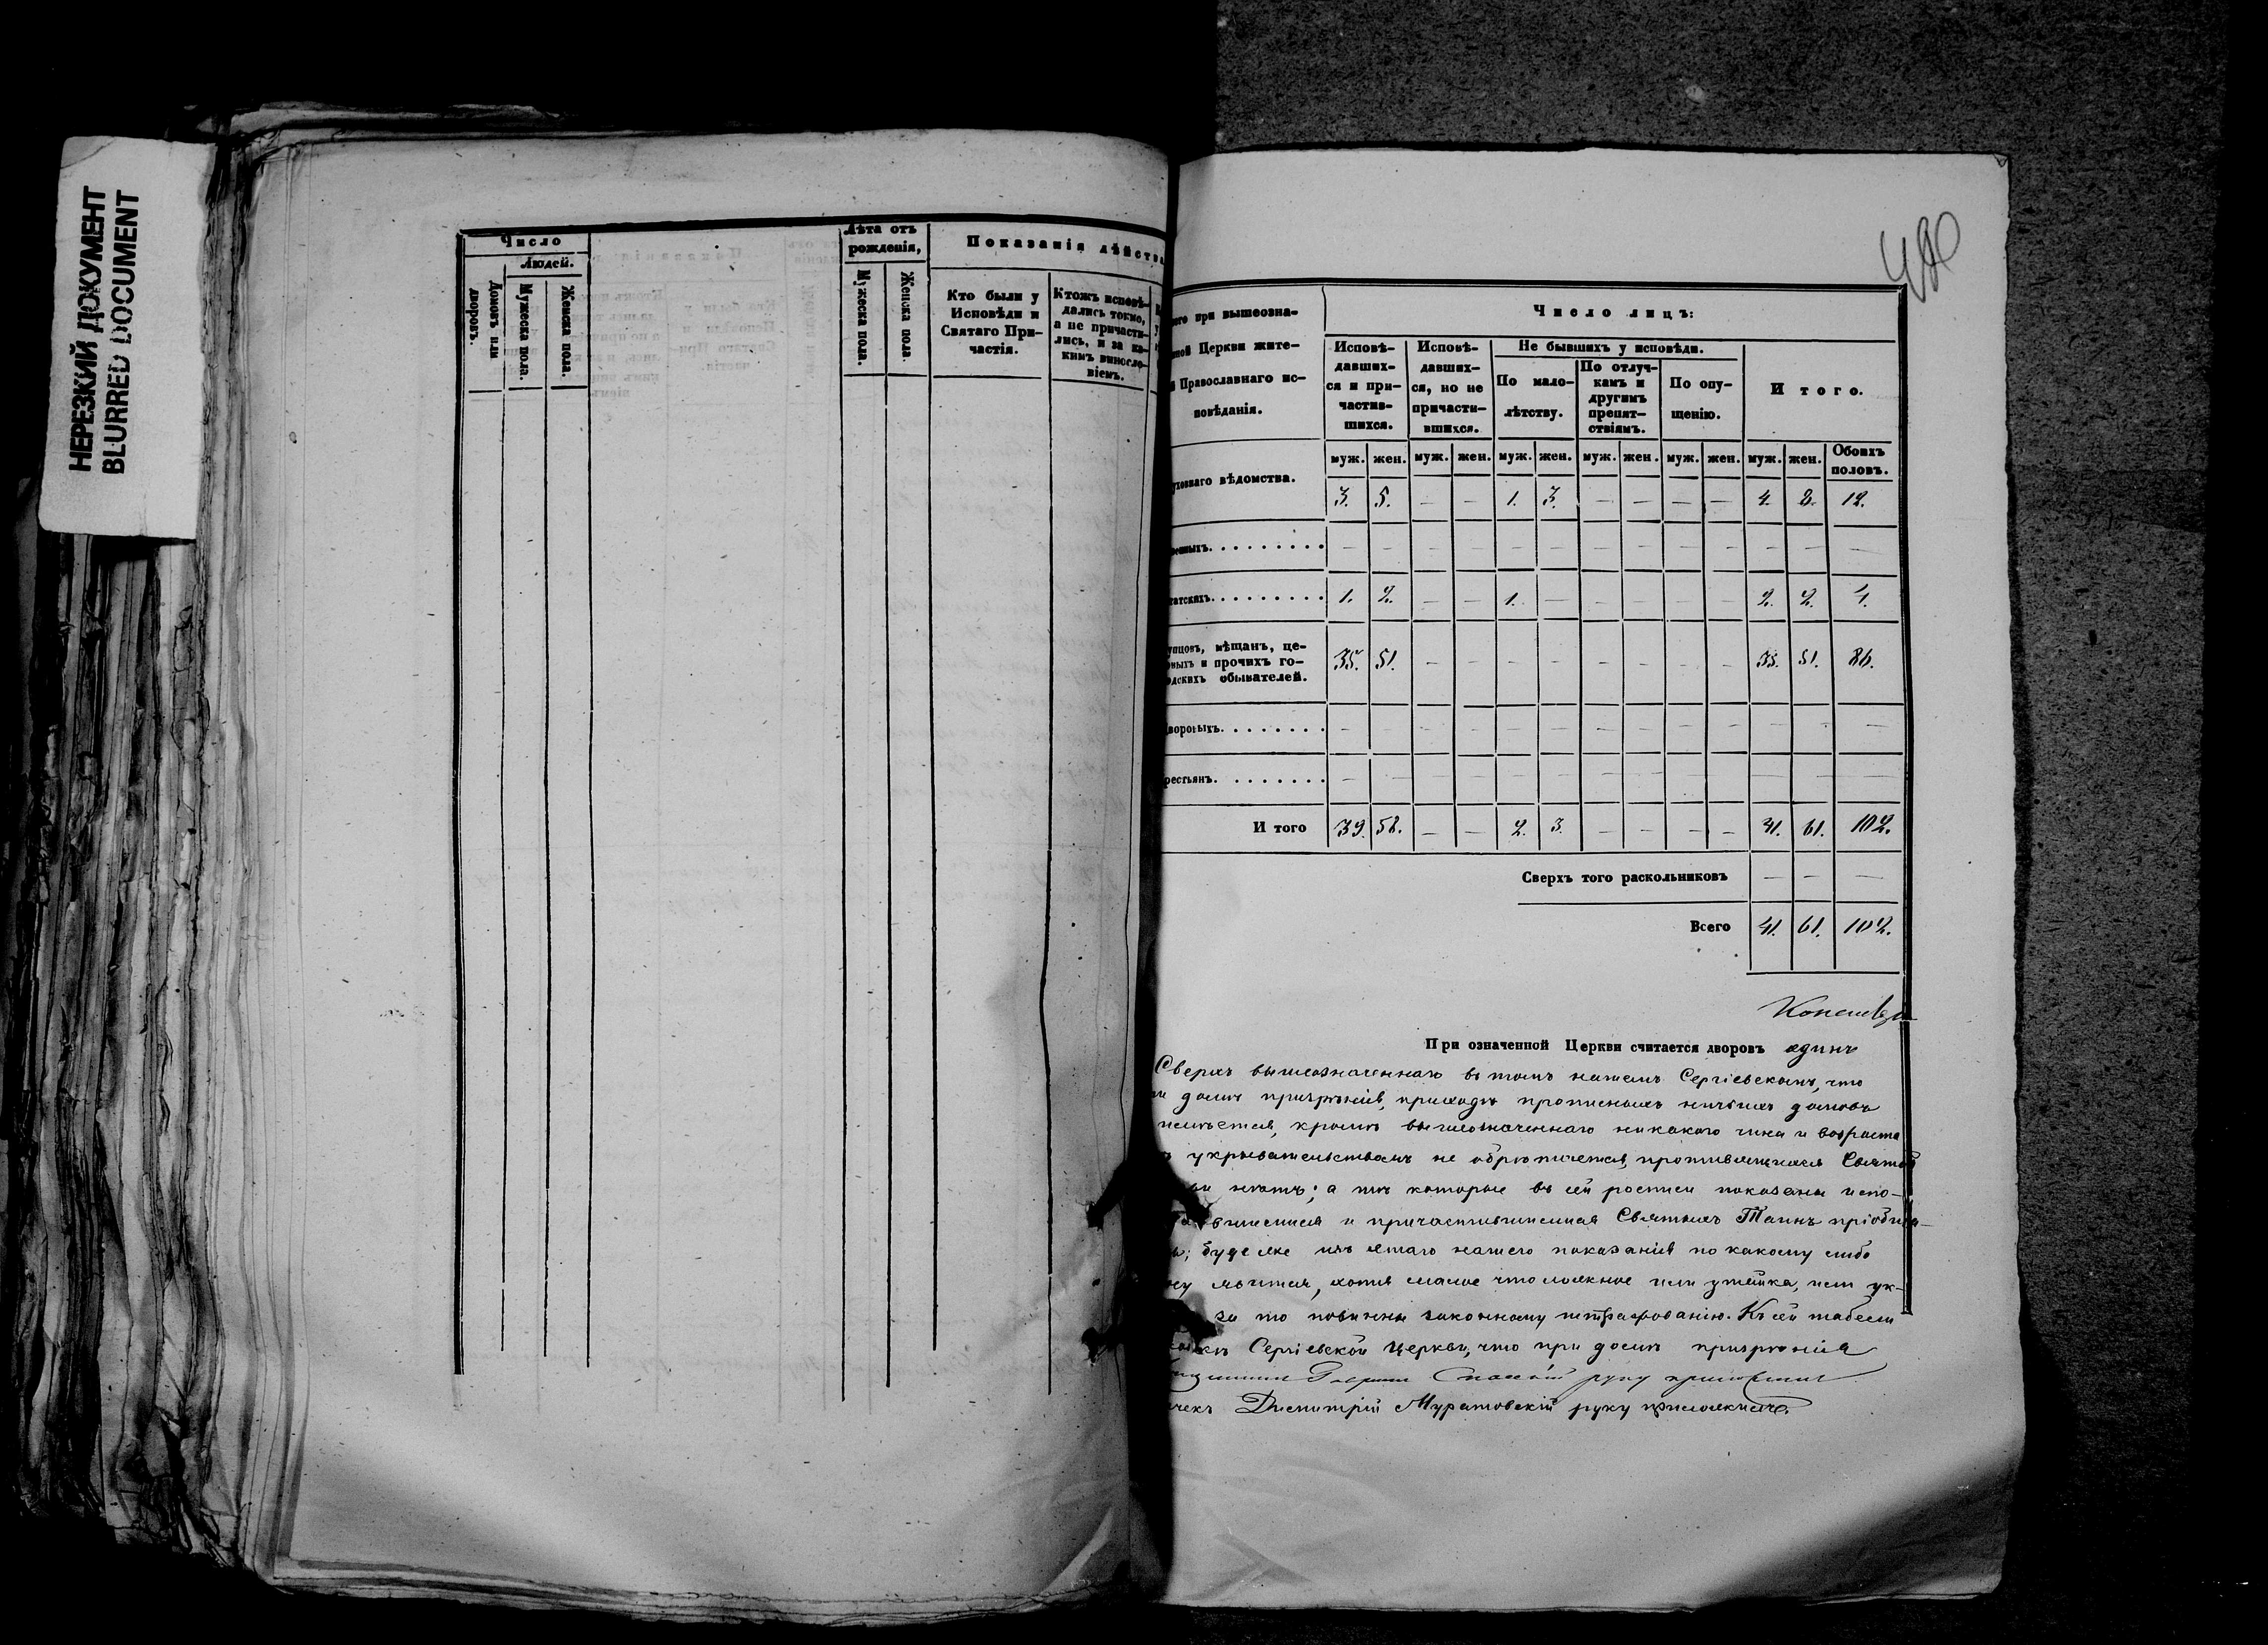 НЕРЕЗКИЙ ДОКУМЕНТ
BLURRED DOCUMENT
Число
Людей.
Домовъ или дворовъ.
Мужеска пола.
Женска пола.
Лѣта отъ рожденія,
Мужеска пола.
Женска пола.
Показанія дѣйства
Кто были у
Исповѣди и
Святаго При-
частія.
Ктожъ исповѣ-
дались токмо,
а не причасти-
лись, и за ка-
кимъ виносло-
віемъ.
при вышеозна-
Церкви жите-
Православнаго ис-
повѣданія.
Число лицъ:
Исповѣ-
давших-
ся и при-
частив-
шихся.
Исповѣ-
давших-
ся, но не
причасти-
вшихся.
Не бывшихъ у исповѣди.
По мало-
лѣтству.
По отлуч-
камъ и
другимъ
препят-
ствіямъ.
По опу-
щенію.
И того.
муж. жен. муж. жен. муж. жен. муж. жен. муж. жен. муж. жен. Обоихъ половъ.
уховнаго вѣдомства. 3. 5. — — 1. 3. — — — — 4. 8. 12.
енныхъ. — — — — — — — — — — — — —
татскихъ. 1. 2. — — 1. — — — — — 2. 2. 4.
упцовъ, мѣщанъ, це-
овыхъ и прочихъ го-
одскихъ обывателей. 35. 51. — — — — — — — — 35. 51. 86.
воровыхъ. — — — — — — — — — — — — —
рестьянъ. — — — — — — — — — — — — —
И того 39. 58. — — 2. 3. — — — — 41. 61. 102.
Сверхъ того раскольниковъ — — —
Всего 41. 61. 102.
При означенной Церкви считается дворовъ единъ
Сверхъ вышеозначеннаго въ томъ нашемъ Сергіевскомъ, что
домѣ призрѣнія, приходѣ прописныхъ ничьихъ домовъ
имѣется, кромѣ вышеозначеннаго никакого чина и возраста
укрывательствомъ не обрѣтается, противящихся Святой
нѣтъ; а тѣ которые въ сей росписи показаны испо-
вшимися и причастившимися Святыхъ Таинъ пріобща-
буде же изъ этаго нашего показанія по какому либо
явится, хотя малое что ложное или утайка, или ук-
за то повинны законному штрафованію. Къ сей табели
Сергіевской Церкви, что при домѣ призрѣнія
руку приложилъ
Димитрій Муратовскій руку приложилъ.